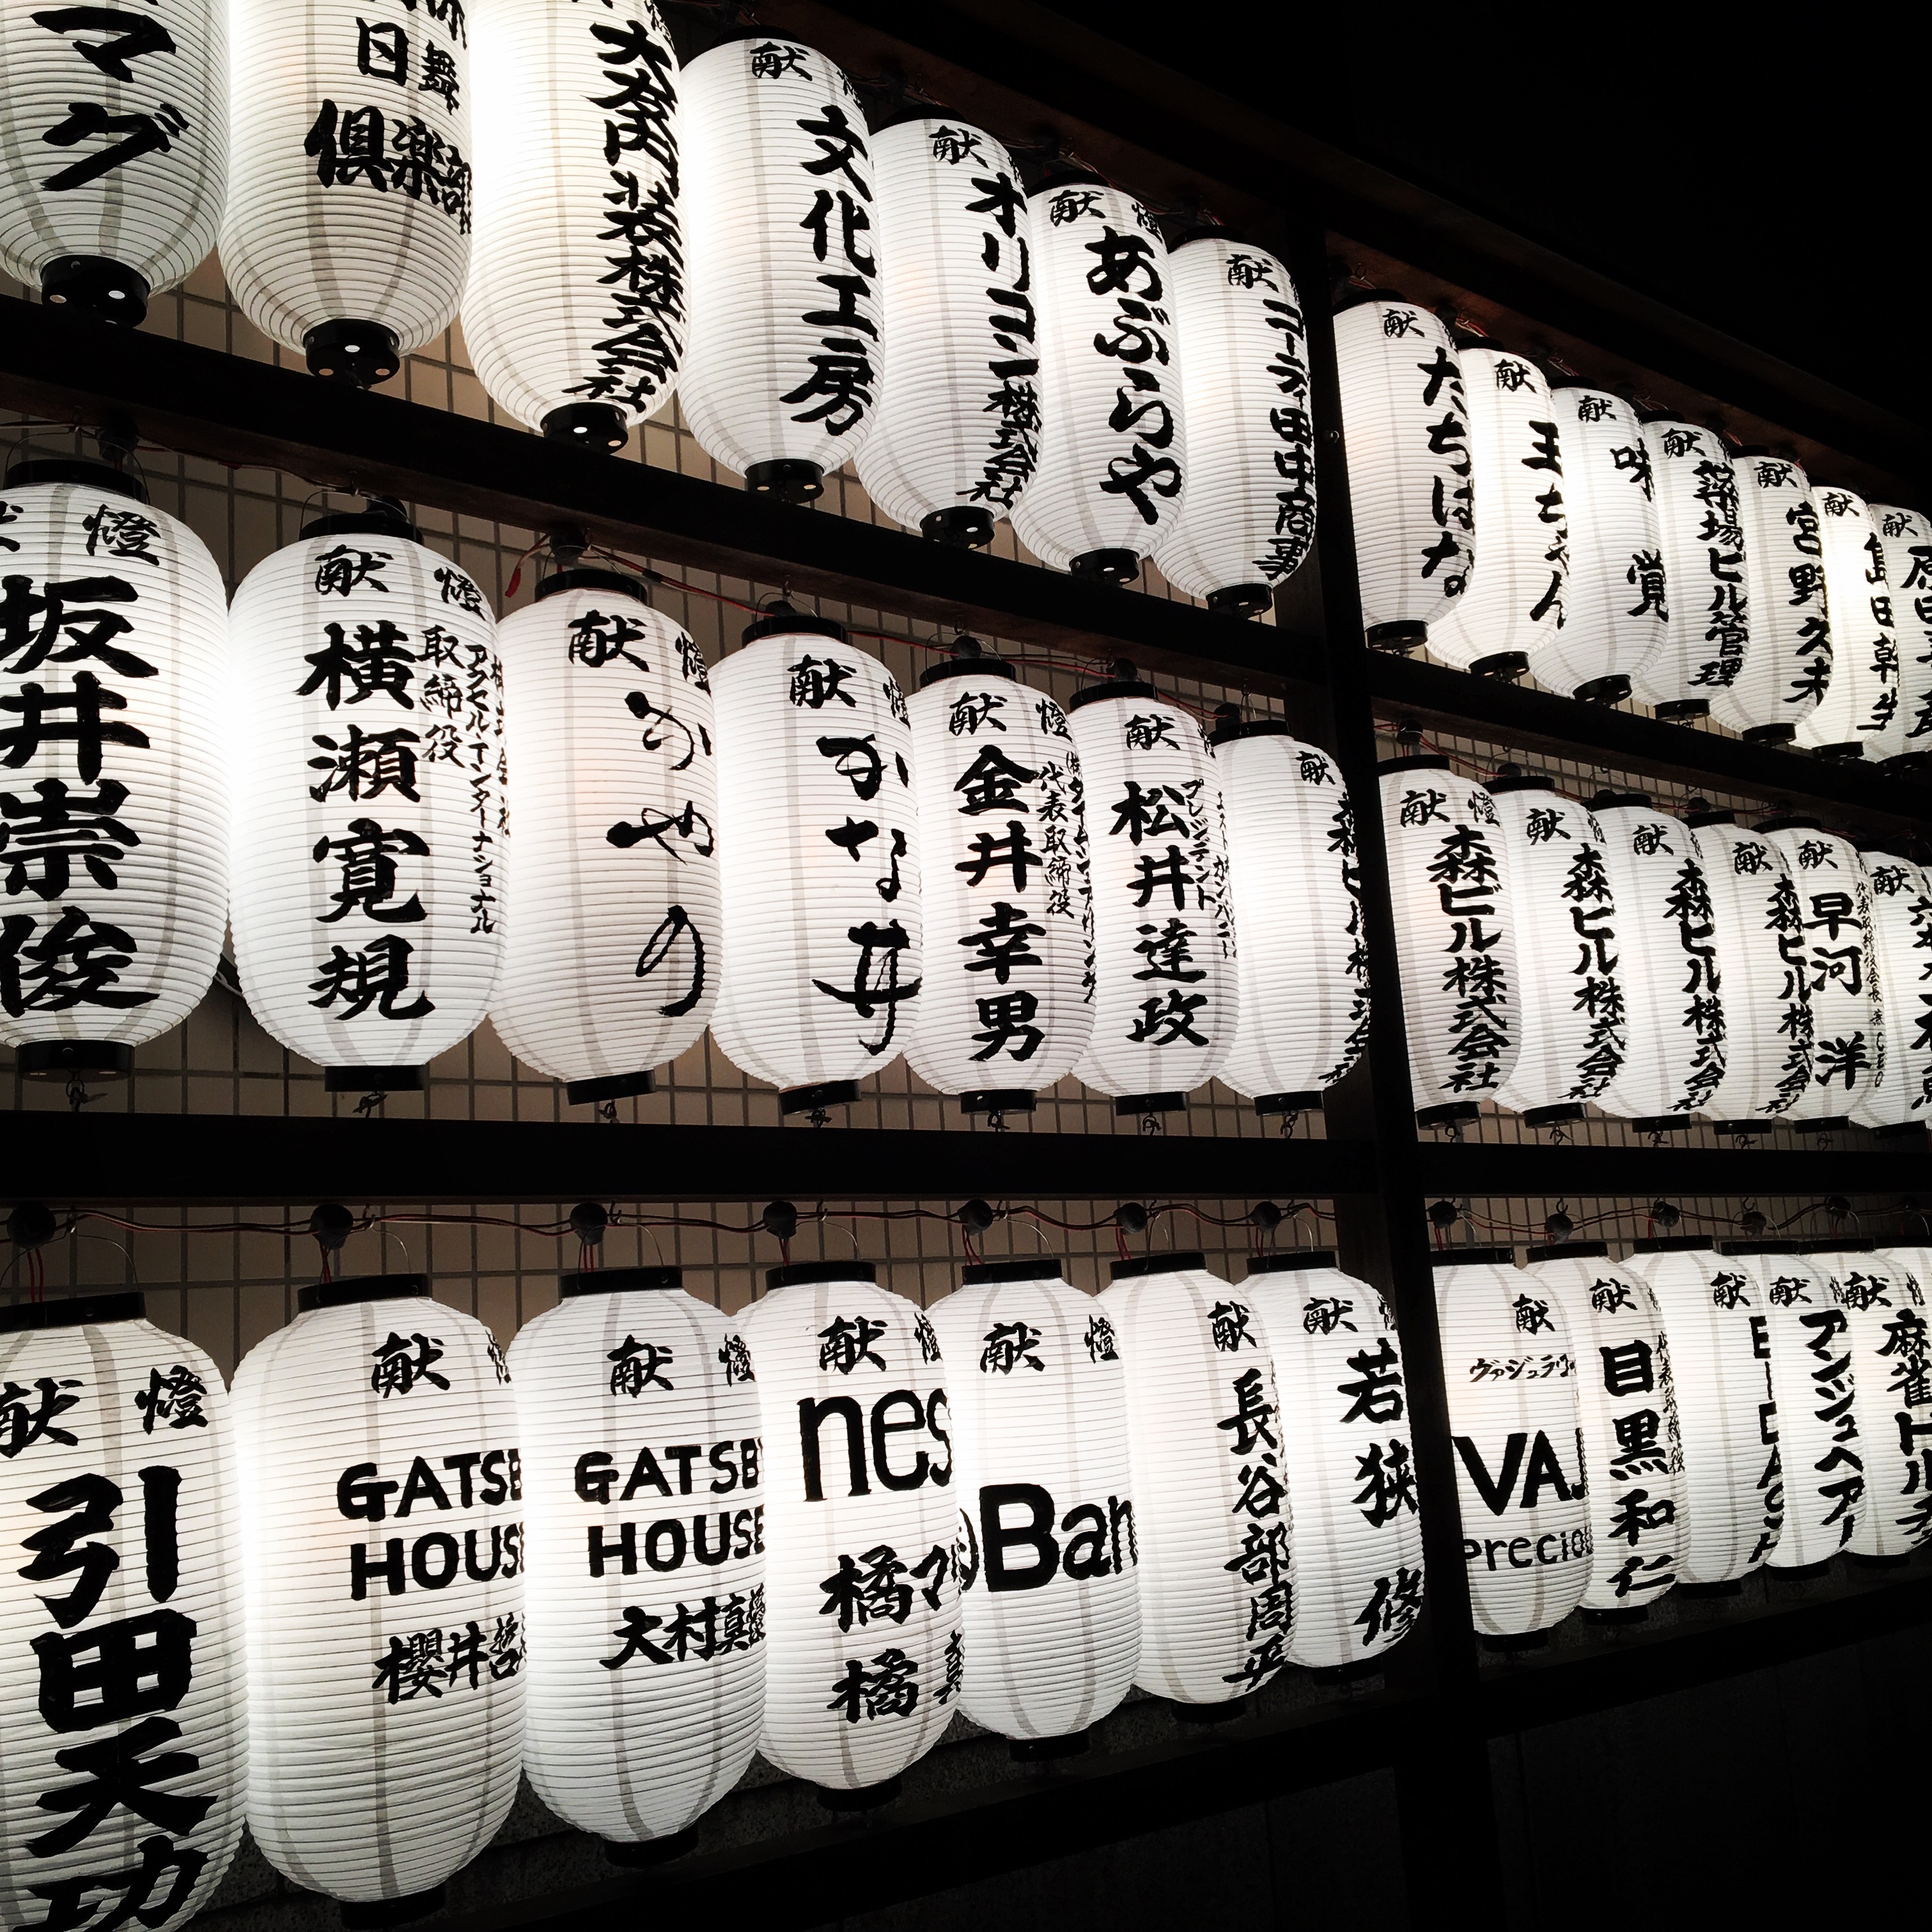 マグ
日舞
倶楽部
大彦内装株式会社
献
文化工房
献
オリヨン株式会社
献燈
あぶらや
献
コーディ田中商事
献
たちばな
献
玉ちゃん
献
味覚
献
築場ビル管理
献
宮野久未
献
島田乾生
献
燈
坂井崇俊
献燈
アクセルインターナショナル
取締役
横瀬寛規
献燈
かやの
献燈
かな井
献燈
代表取締役
金井幸男
献
プレジデント
松井達政
献
森ビル株式会社
献燈
森ビル株式会社
献
森ビル株式会社
献
森ビル株式会社
献
森ビル株式会社
献
早河洋
献
献燈
引田天功
献
GATSB
HOUS
櫻井
献燈
GATSB
HOUSE
大村真
献燈
nes
橘マ
橘
献燈
Ban
献
長谷部周平
献
若狭修
献
ヴァジュラ
VAJ
precio
献
目黒和仁
献
献
アンジュヘアー
献
麻雀